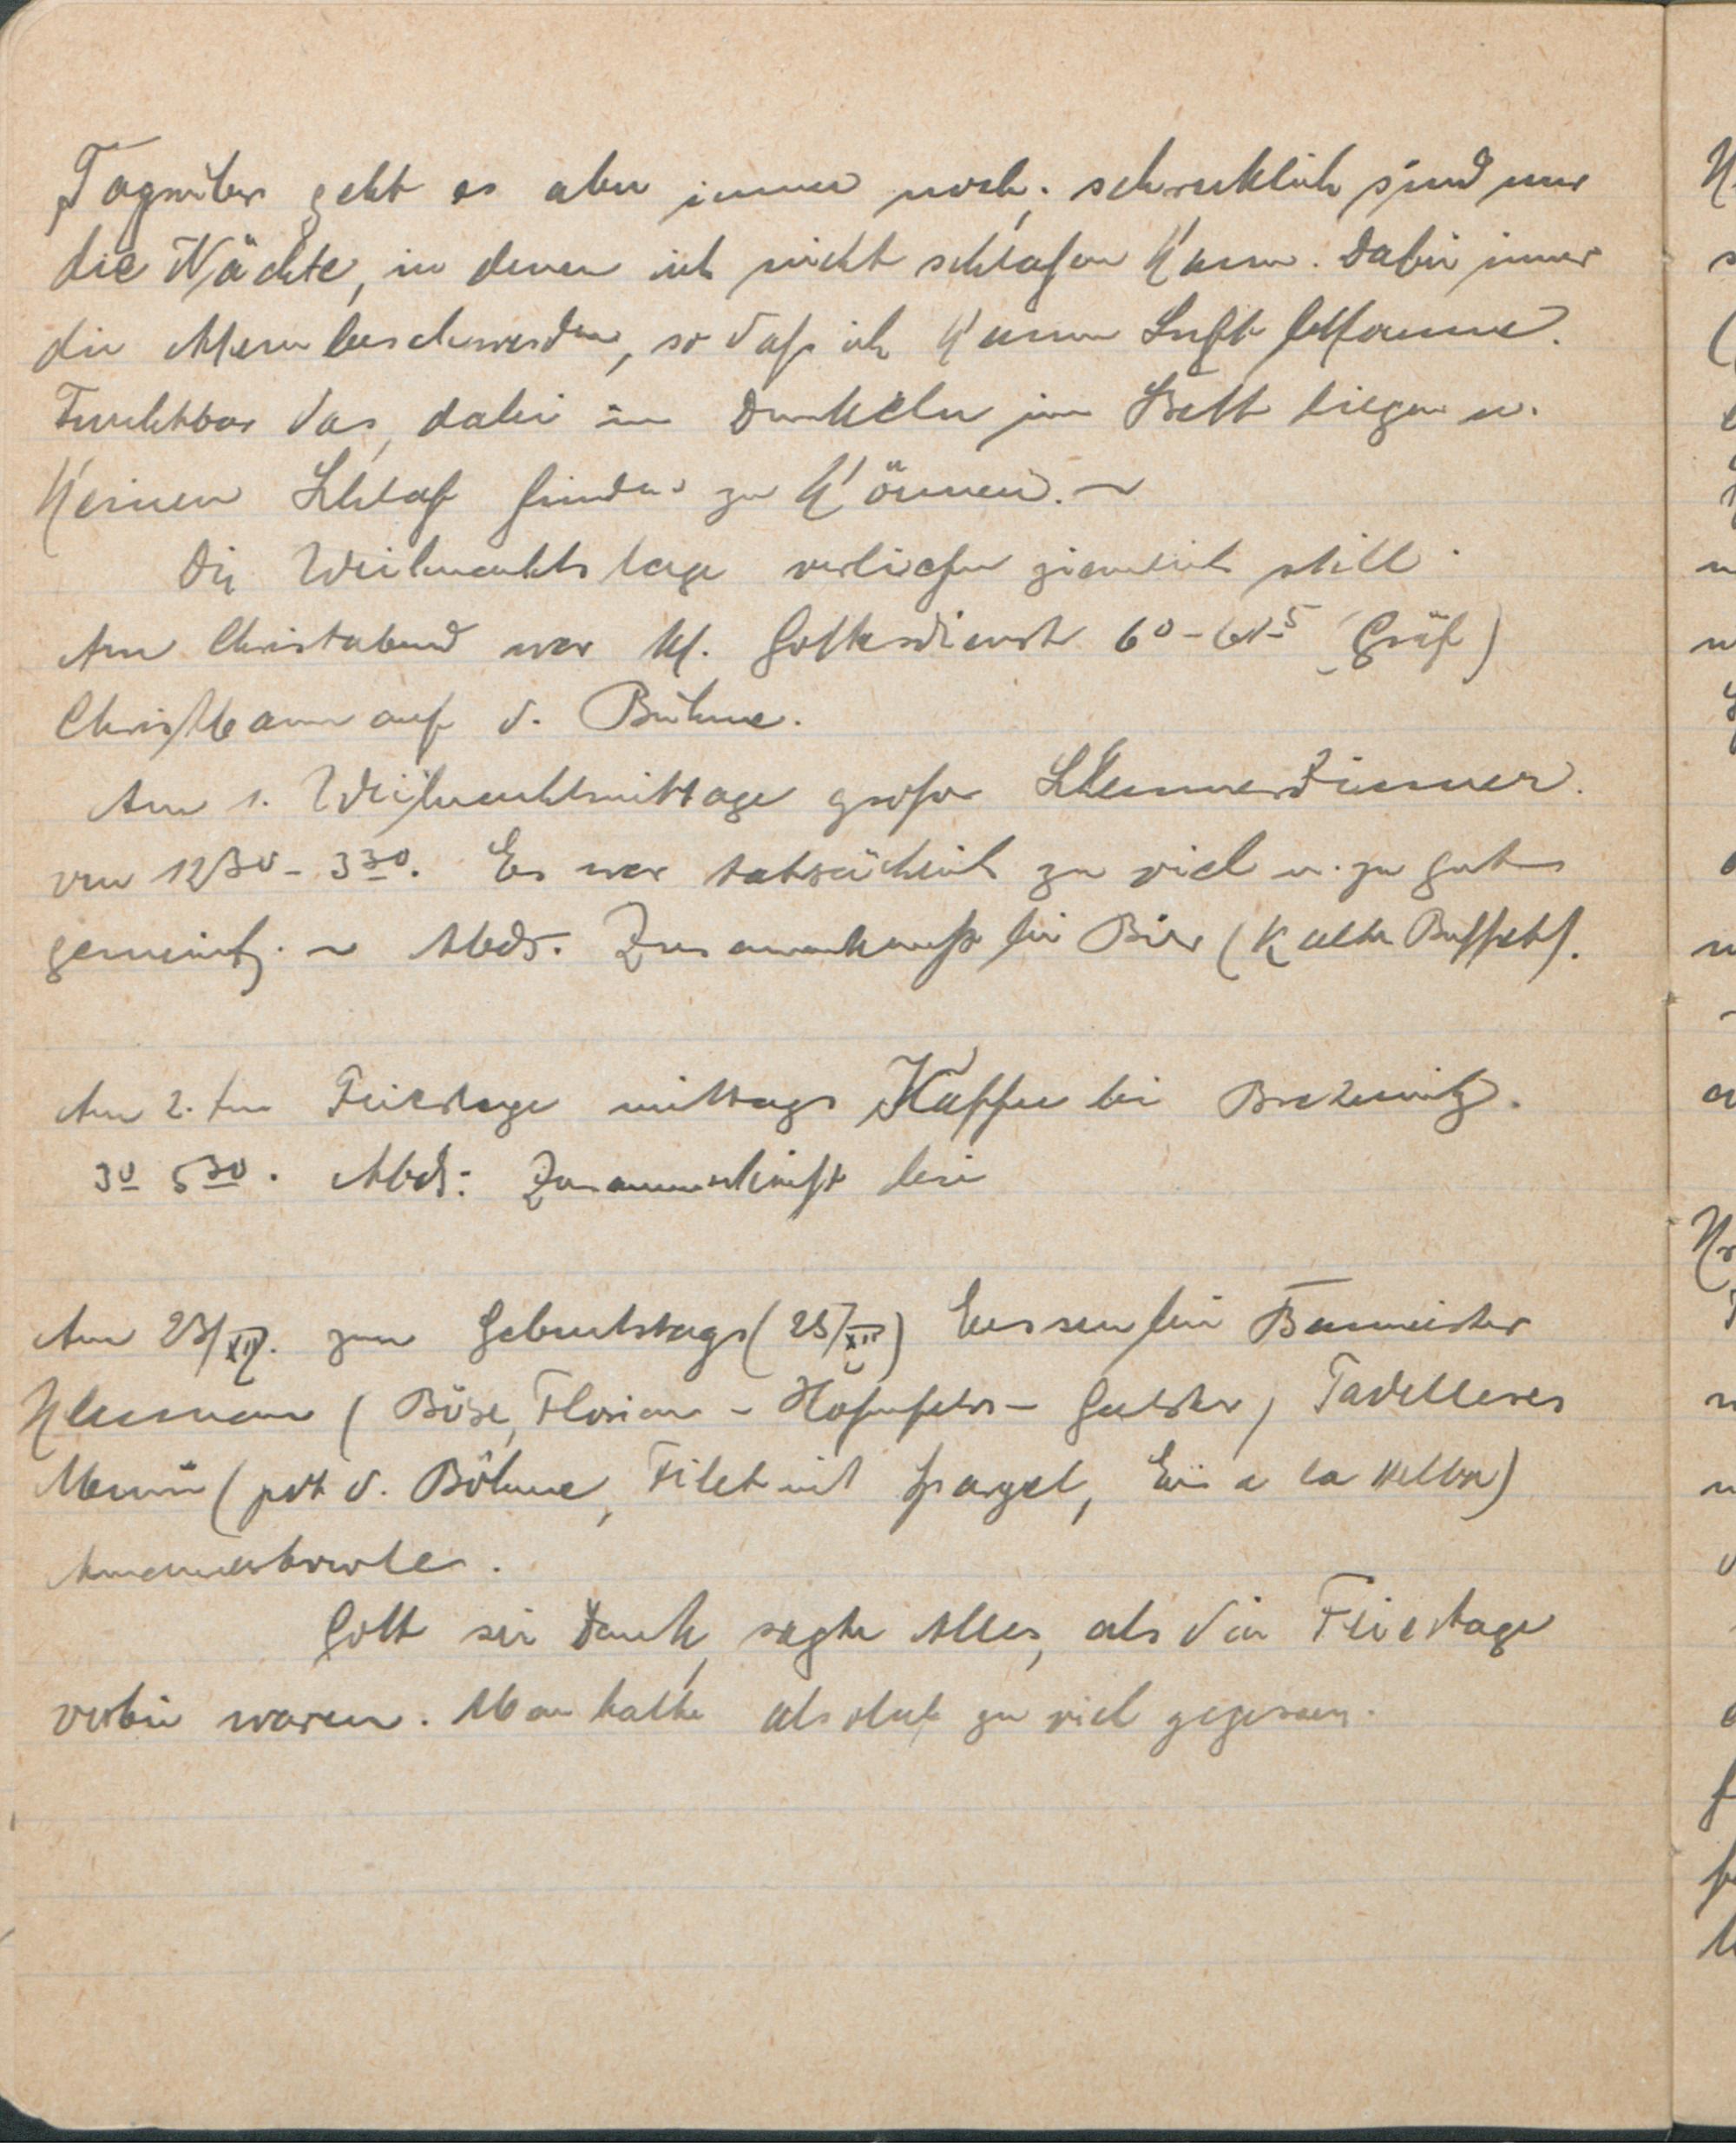 Tagsüber geht es aber immer noch; schrecklich sind nur
die Nächte, in denen ich nicht schlafen kann. Dabei immer
die Atembeschwerden, so daß ich kaum Luft bekomme.
Furchtbar das, dabei im Dunkeln im Bett liegen u.
keinen Schlaf finden zu können. ~
Die Weihnachtstage verliefen ziemlich still.
Am Christabend war kl. Gottesdienst 6⁰ - 645 (Gräf)
Christbaum auf d. Bühne.
Am 1. Weihnachtsmittage großes Schlemmerdinner.
von 12³⁰ - 3³⁰. Es war tatsächlich zu viel u. zu gut
gemeint. ~ Abds. Zusammenkunft bei Bier (Kaltes Buffett).
Am 2. ten Feiertage mittags Kaffee bei
3⁰ 5³⁰. Abds: Zusammenkunft bei
Am 23/XII. zum Geburtstags (25/XII) Essen bei Baumeister
(Böse, Florian - ) Tadelloses
Menü (pot d. Böhme, Filet mit Spargel, Eis a la Melba)
Ananasbowle.
Gott sei Dank, sagte Alles, als die Feiertage
vorbei waren. Man hatte absolut zu viel gegessen.